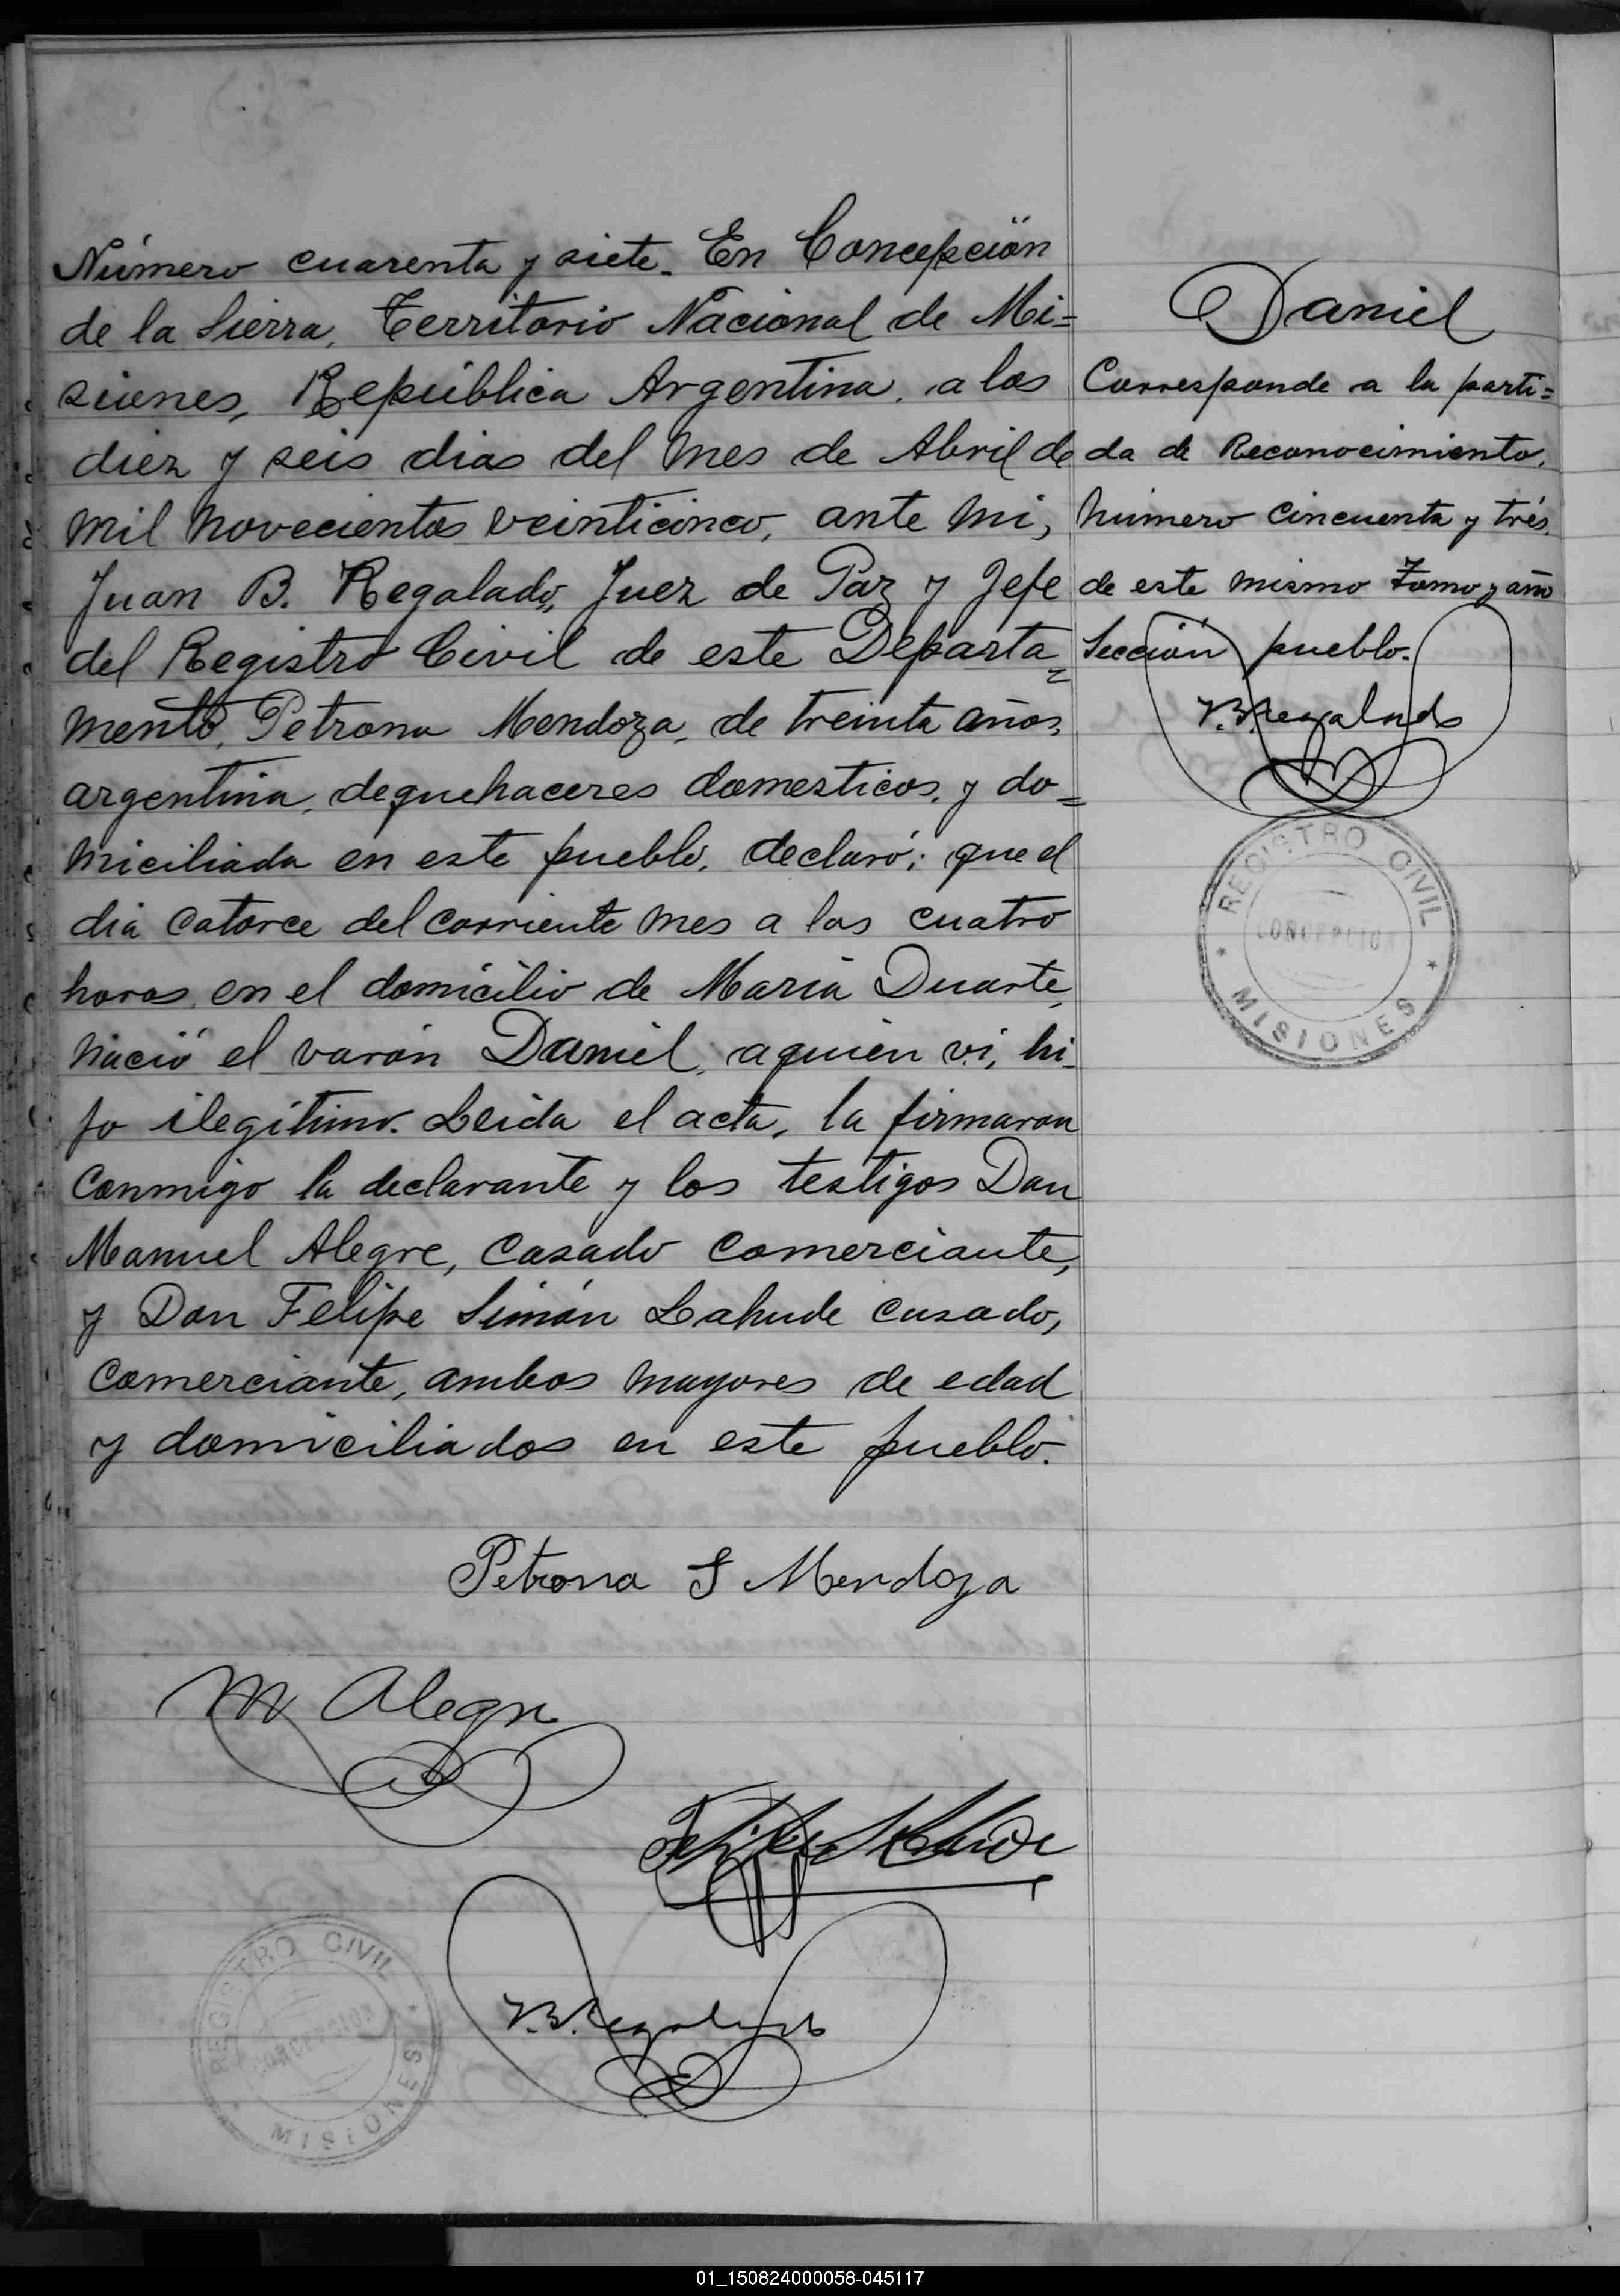 Número cuarenta y siete. En Concepción
de la Sierra, Territorio Nacional de Mi=
siones, República Argentina, a los
diez y seis dias del mes de Abril de
mil novecientos veinticinco, ante mi,
Juan B. Regalado, Juez de Paz y Jefe
del Registro Civil de este Departa=
mento, Petrona Mendoza, de treinta años,
argentina, de quehaceres domesticos, y do=
miciliada en este pueblo, declaró; que el
dia catorce del corriente mes a las cuatro
horas, en el domicilio de Maria Duarte,
nació el varón Daniel, a quien vi, hi=
jo ilegítimo. Leida el acta, la firmaron
conmigo la declarante y los testigos Don
Manuel Alegre, casado comerciante,
y Don Felipe Simón Lahude casado,
comerciante, ambos mayores de edad
y domiciliados en este pueblo.
Petrona S Mendoza
M Alegre
Felipe S Lahude
J.B.Regalado
REGISTRO CIVIL
CONCEPCION
MISIONES
Daniel
Corresponde a la parti=
da de Reconocimiento,
número cincuenta y trés,
de este mismo Tomo y año
Sección pueblo.
J.B.Regalado
REGISTRO CIVIL
CONCEPCION
MISIONES
01_150824000058-045117